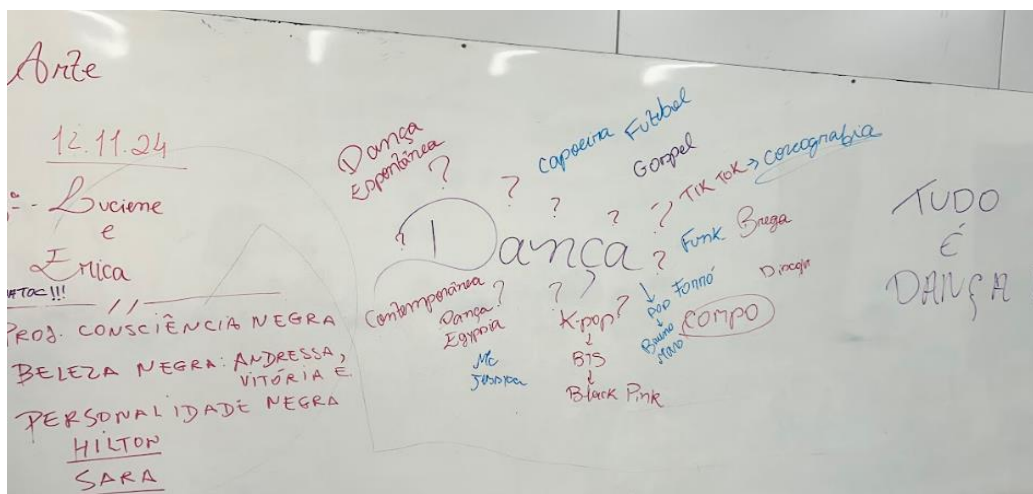 Arte
12.11.24
Luciene
e
Erica
PROJ. CONSCIÊNCIA NEGRA
BELEZA NEGRA: ANDRESSA,
VITÓRIA E
PERSONALIDADE NEGRA
HILTON
SARA
Dança
Espontânea
?
?
?
capoeira Futebol
Gospel
? ? TIK TOK → coreografia
? Dança ?
Funk Brega
Contemporânea ? ? ?
Dança
Egypsia
K-pop
↓
BTS
↓
Black Pink
↓
Pop Forró
↓
Bruno
CORPO
TUDO
É
DANÇA